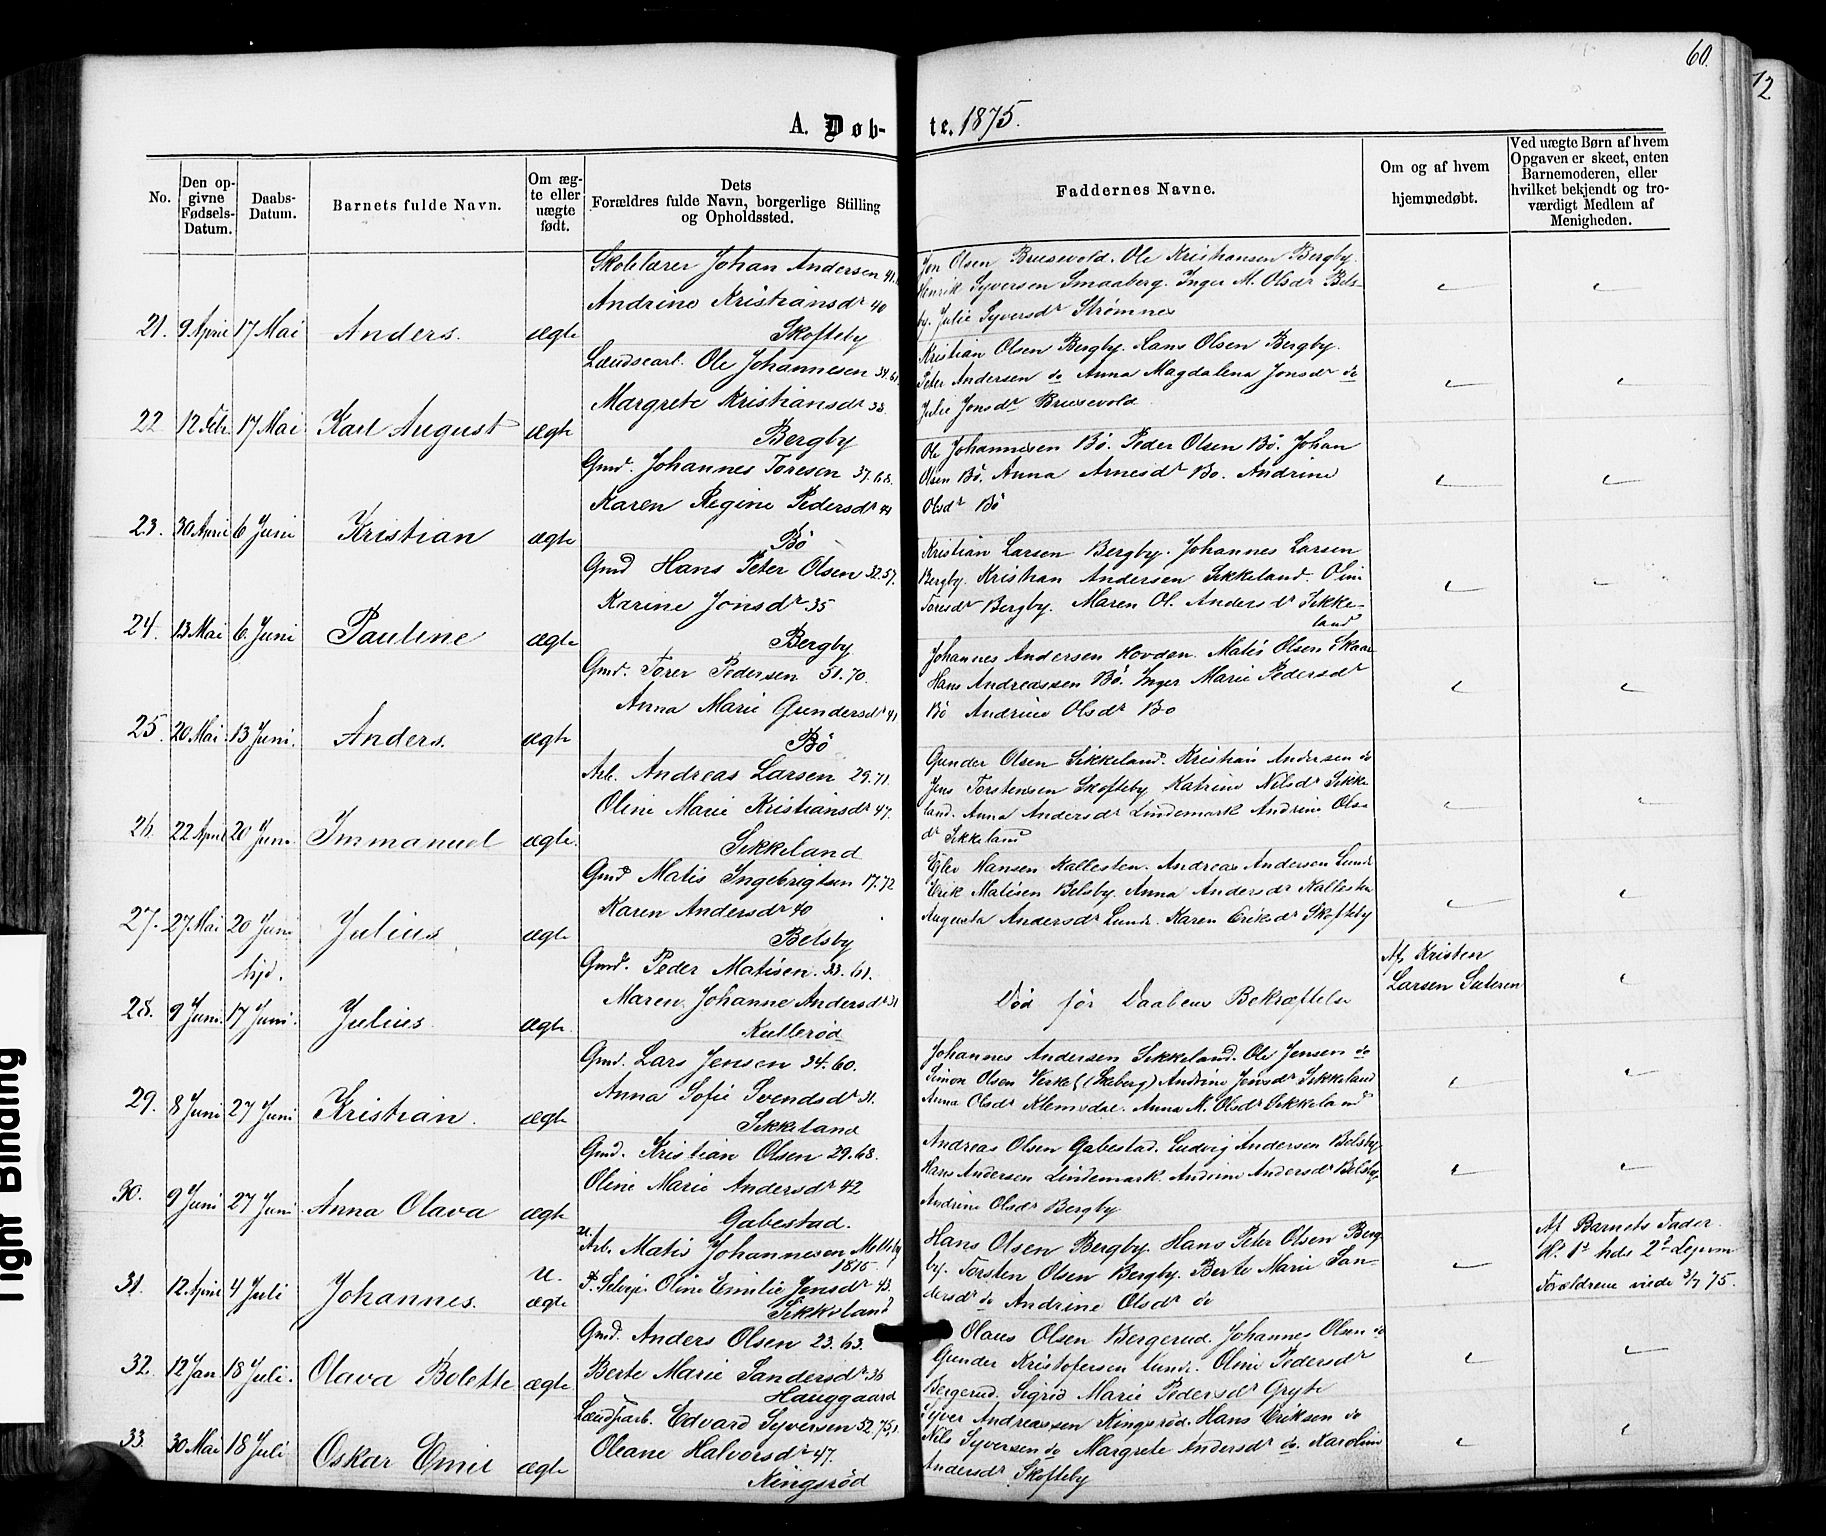 60.
12
A. Døb-
te. 1875.
No.
Den op-
givne
Fødsels-
Datum.
Daabs-
Datum.
Barnets fulde Navn.
Om æg-
te eller
uægte
født.
Dets
Forældres fulde Navn, borgerlige Stilling
og Opholdssted.
Faddernes Navne.
Om og af hvem
hjemmedøbt.
Ved uægte Børn af hvem
Opgaven er skeet, enten
Barnemoderen, eller
hvilket bekjendt og tro-
værdigt Medlem af
Menigheden.
21. 9 April 17 Mai Anders. ægte
Skolelærer Johan Andersen 41.
Andrine Kristiansdr 40
Skofteby
Jon Olsen Brusevold. Ole Kristiansen Bergby.
Henrik Syversen Smaaberg. Inger M. Olsdr Bels-
by. Julie Syversdr Strømnes
22 12 Febr. 17 Mai Karl August ægte
Landsearb. Ole Johannesen 34.61
Margrete Kristiansdr 38.
Bergby
Kristian Olsen Bergby. Hans Olsen Bergby.
Peter Andersen do Anna Magdalena Jonsdr do
Julie Jonsdr Brusevold
23. 30 April 6 Juni Kristian ægte
Gmd. Johannes Toresen 37.68.
Karen Regine Pedersdr 44
Bö
Ole Johannesen Bö. Peder Olsen Bö. Johan
Olsen Bö. Anna Arnesdr Bo. Andrine
Olsdr Bö
24. 13 Mai 6 Juni Pauline ægte
Gmd Hans Peter Olsen 32.57.
Karine Jonsdr 35
Bergby
Kristian Larsen Bergby. Johannes Larsen
Bergby. Kristian Andersen Sikkeland. Olin
Toresdr Bergby. Maren Ol. Andersdr Sikke-
land
25. 20 Mai. 13 Juni. Anders. ægte
Gmd. Torer Pedersen 51.70.
Anna Marie Gundersdr 41
Bö
Johannes Andersen Hovden. Matis Olsen Skaar
Hans Andreassen Bö. Inger Marie Pedersdr
Bö Andrine Olsdr Bo
26. 22 April 20 Juni Immanuel ægte.
Arb. Andreas Larsen 29.71.
Oline Marie Kristiansdr 47.
Sikkeland
Gunder Olsen Sikkeland. Kristian Andersen do
Jens Torstensen Skofteby Katrine Nilsdr Sikke-
land. Anna Andersdr Lindemark Andrine Ols-
dr Sikkeland
27. 27 Mai 20 Juni Julius ægte
Gmd Matis Ingebrigtsen 17.72
Karen Andersdr 40
Belsby
Eglev Hansen Kallesten. Andreas Andersen Lund
Erik Matisen Belsby. Anna Andersdr Kallesten
Augusta Andersdr Lund. Karen Eriksdr Skofteby
28. 9 Juni hjd. 17 Juni. Julius. ægte.
Gmd. Peder Matisen. 33.61.
Maren Johanne Andersdr 31
Kullerød
Død før Daabens Bekræftelse
Af Kristen
Larsen Suteren
29. 8 Juni 27 Juni Kristian. ægte
Gmd. Lars Jensen 34.60.
Anna Sofie Svendsdr 31.
Sikkeland
Johannes Andersen Sikkeland. Ole Jensen do
Simon Olsen Verket (Skeberg) Andrine Jensdr Sikkeland
Anna Olsdr Klemsdal. Anna M. Olsdr Sikkeland
30. 9 Juni 27 Juni Anna Olava ægte
Gmd. Kristian Olsen 29.68.
Oline Marie Andersdr 42
Gabestad.
Andreas Olsen Gabestad. Ludvig Andersen Belsby.
Hans Andersen Lindemark. Andrine Andersdr Belsby.
Andrine Olsdr Bergby
31. 12 April 4 Juli Johannes. u. ægte
u. Arb. Matis Johannesen Melleby
1815.
P. Selveje Oline Emilie Jensdr 43.
Sikkeland
Hans Olsen Bergby. Hans Peter Olsen Berg-
by. Torsten Olsen Bergby. Berte Marie San-
dersdr do Andrine Olsdr do
Af Barnets Fader.
H. 1s hds 2s Leierm
Forældrene viede 3/7 75.
32. 12 Jan 18 Juli. Olava Bolette ægte
Gmd. Anders Olsen 23.63.
Berte Marie Sandersdr 36
Hauggaard
Olaus Olsen Bergerud. Johannes Olsen do
Gunder Kristofersen Lund. Oline Pedersdr
Bergerud. Sigrid Marie Pedersdr Gryte
33. 30 Mai 18 Juli Oskar Emil ægte
Landsearb. Edvard Syversen 52.75.
Oleane Halvorsdr 47.
Ringsrød
Syver Andreassen Ringsrød. Hans Eriksen do
Nils Syversen do Margrete Andersdr do. Karoline
Andersdr Skofteby
Tight Binding